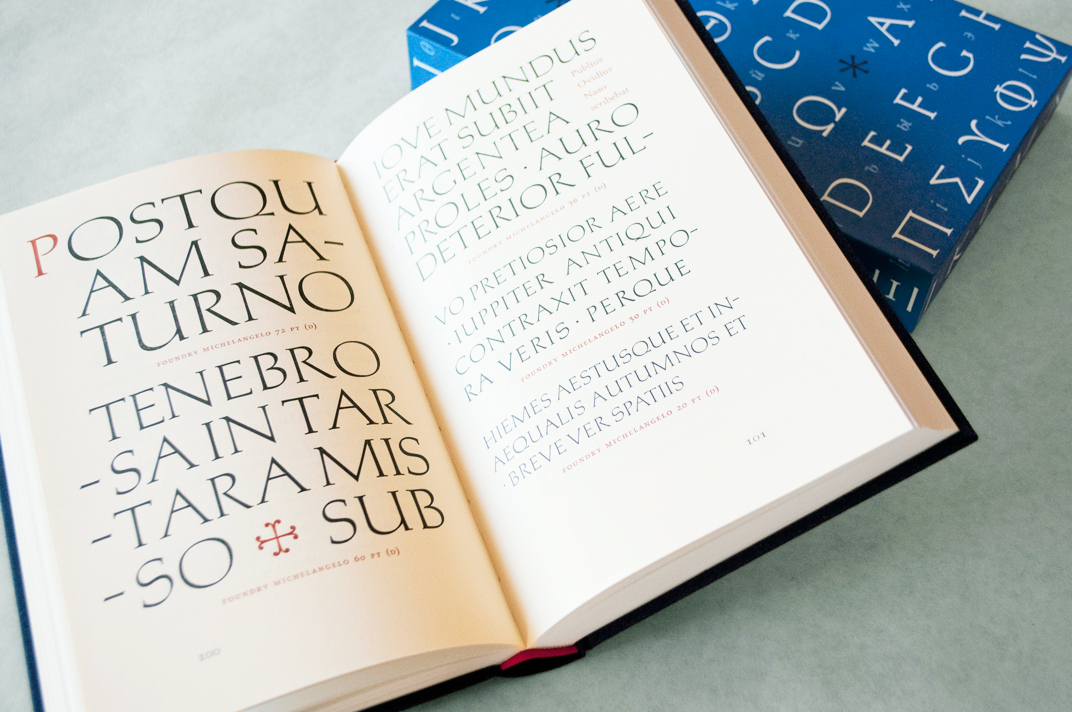 POSTQU
AM SA-
TURNO
FOUNDRY MICHELANGELO 72 PT (D)
TENEBRO
-SA IN TAR
-TARA MIS
-SO SUB
FOUNDRY MICHELANGELO 60 PT (D)
100
IOVE MUNDUS
ERAT SUBIIT
ARGENTEA
PROLES · AURO
DETERIOR FUL-
Publius
Ovidius
Naso
scribebat
FOUNDRY MICHELANGELO 36 PT (D)
VO PRETIOSIOR AERE
· IUPPITER ANTIQUI
CONTRAXIT TEMPO-
RA VERIS · PERQUE
FOUNDRY MICHELANGELO 30 PT (D)
HIEMES AESTUSQUE ET IN-
AEQUALIS AUTUMNOS ET
· BREVE VER SPATIIS
FOUNDRY MICHELANGELO 20 PT (D)
101